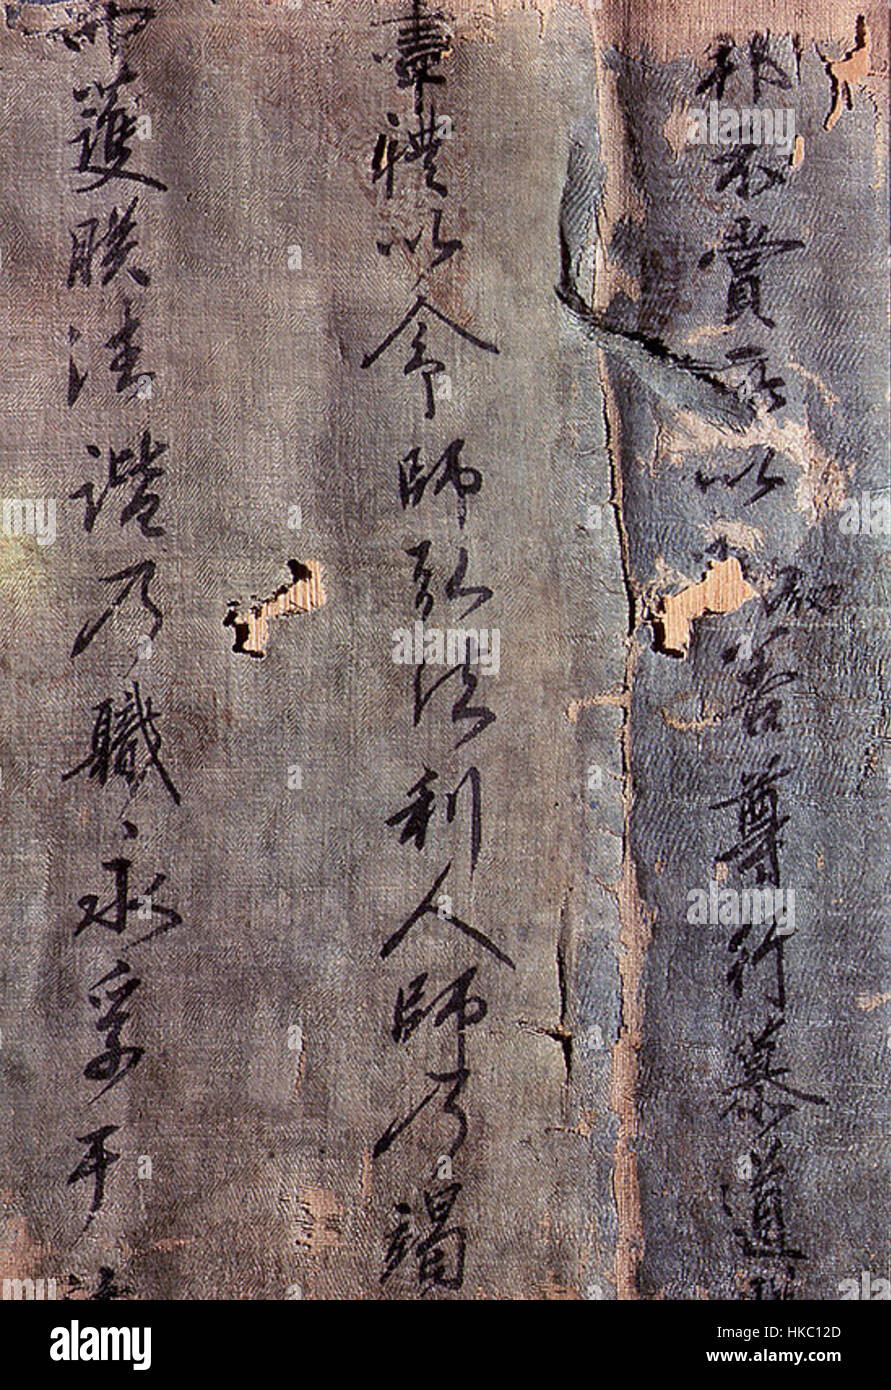 賞 以 尊行慕道
禮以令師弘法利人師乃竭
護朕清諧乃職永孚于
alamy
Image ID: HKC12D
www.alamy.com